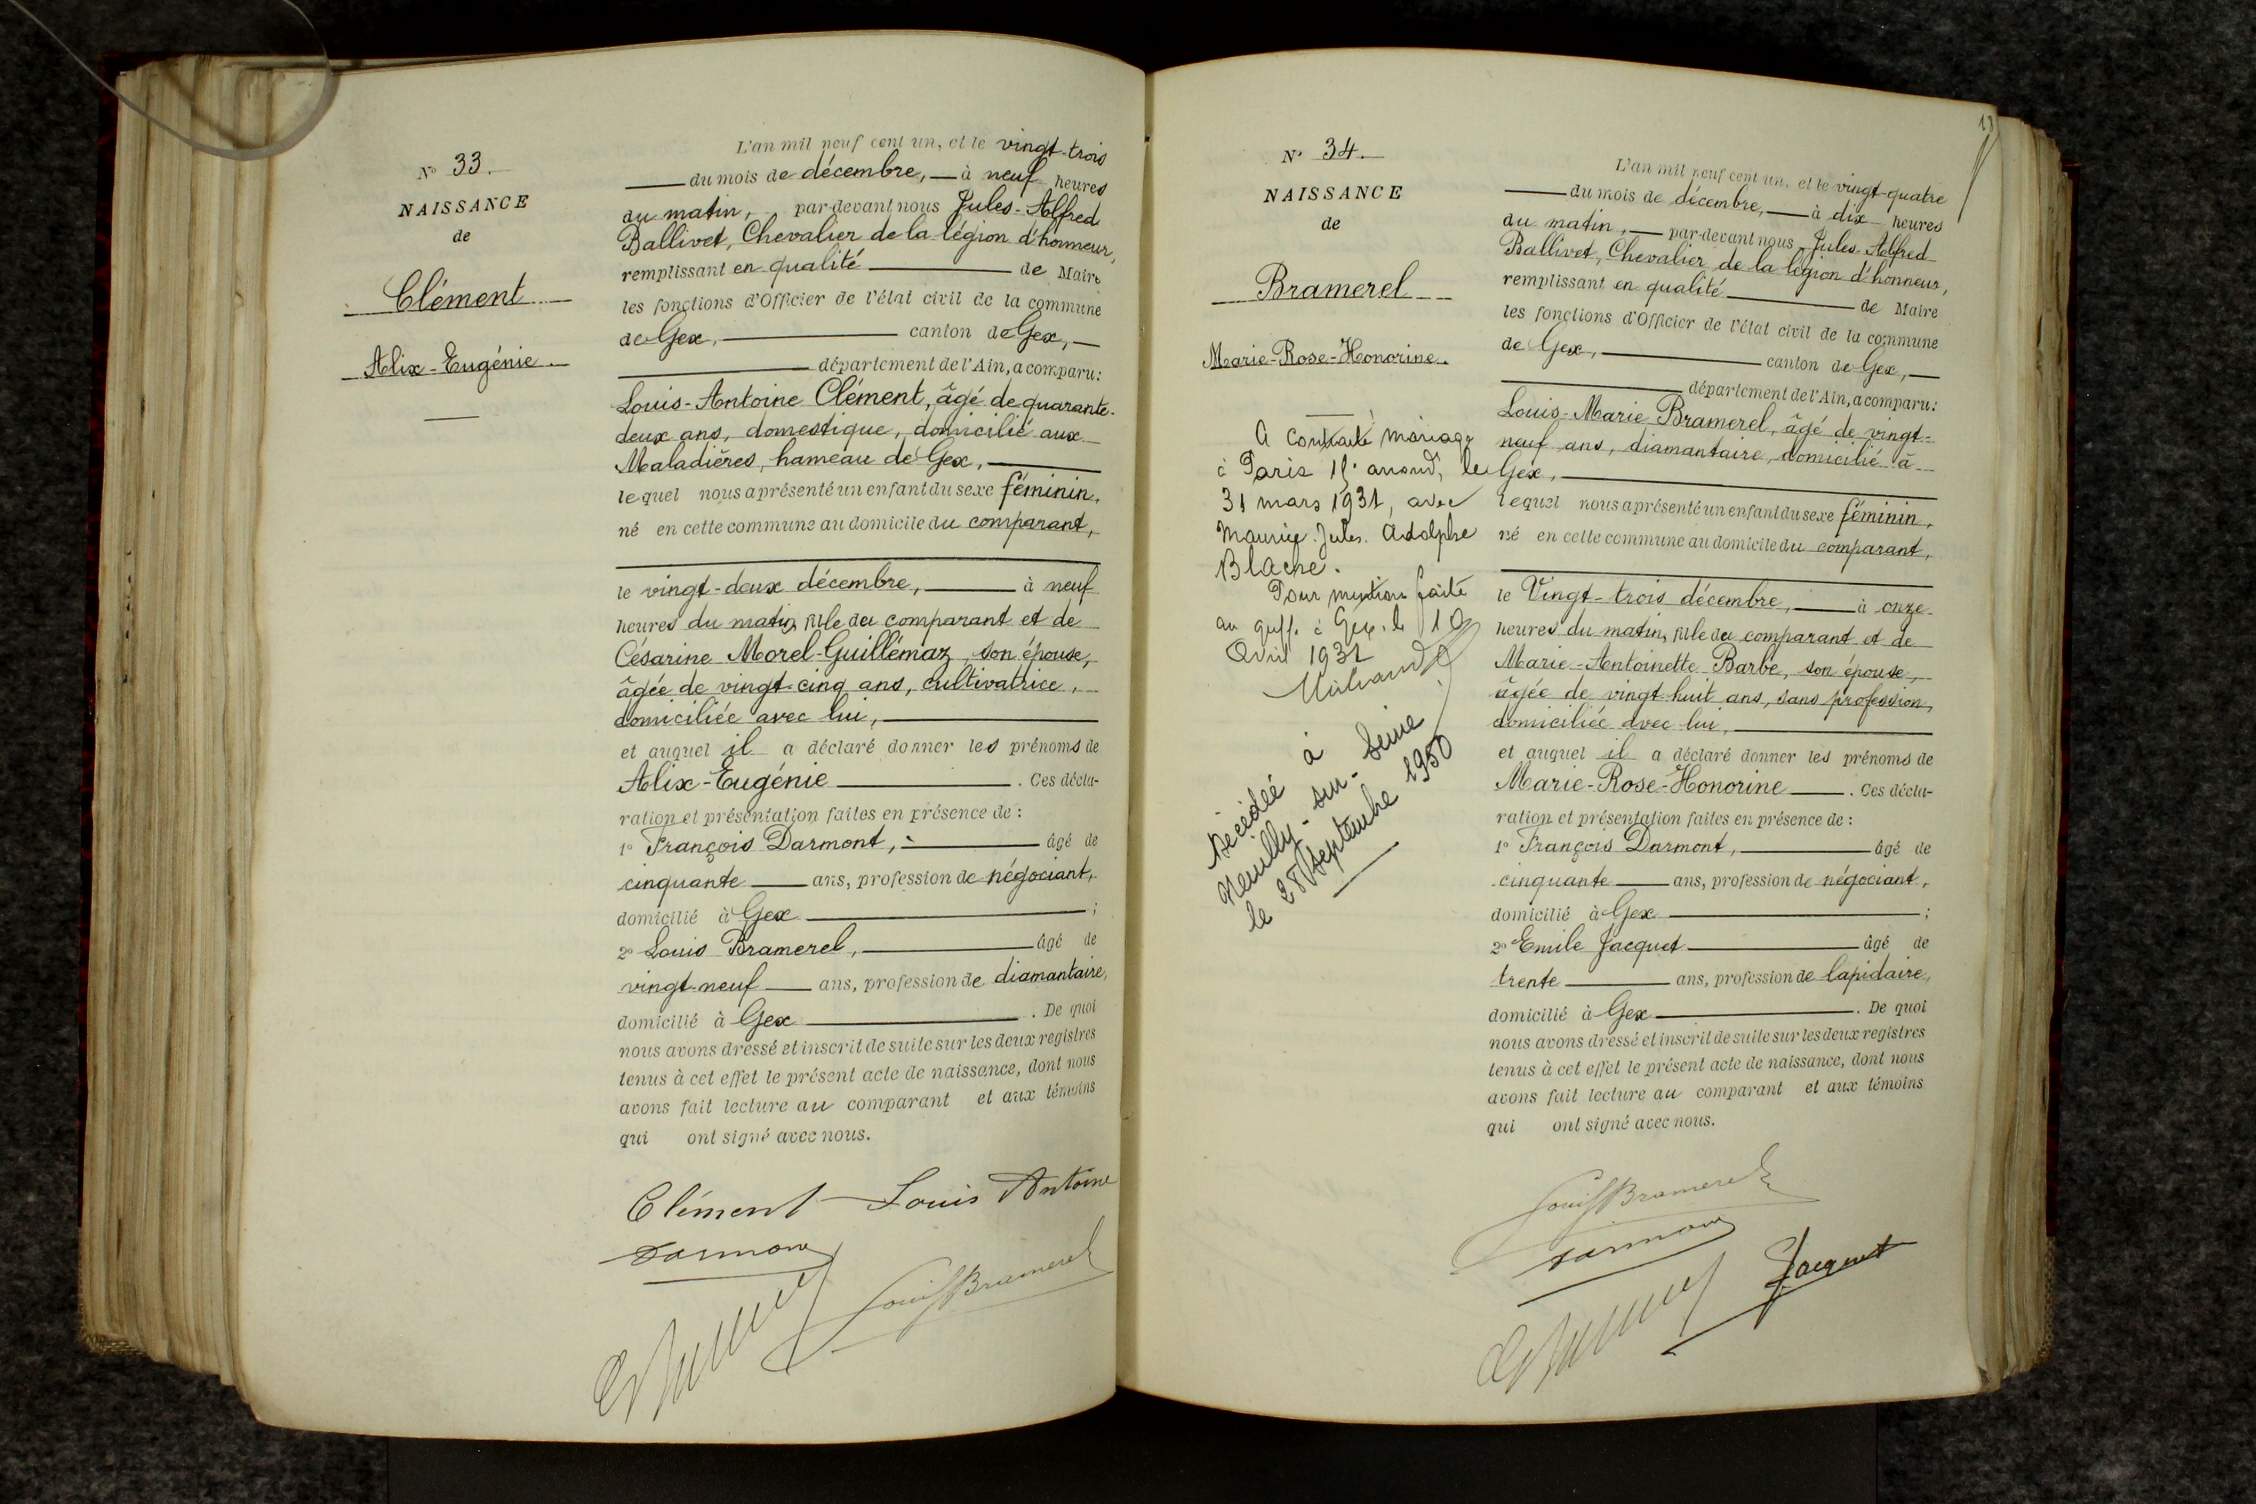 N° 33.
NAISSANCE
de
Clément
Alix-Eugénie
L'an mil neuf cent un, et le vingt-trois
du mois de décembre, à neuf heures
du matin, par-devant nous Jules-Alfred
Ballivet, Chevalier de la légion d'honneur,
remplissant en qualité de Maire
les fonctions d'Officier de l'état civil de la commune
de Gex, canton de Gex,
département de l'Ain, a comparu:
Louis-Antoine Clément, âgé de quarante-
deux ans, domestique, domicilié aux
Maladières, hameau de Gex,
lequel nous a présenté un enfant du sexe féminin,
né en cette commune au domicile du comparant,
le vingt-deux décembre, à neuf
heures du matin, fille du comparant et de
Césarine Morel-Guillémaz, son épouse,
âgée de vingt-cinq ans, cultivatrice,
domiciliée avec lui,
et auquel il a déclaré donner les prénoms de
Alix-Eugénie. Ces décla-
ration et présentation faites en présence de:
1° François Darmont, âgé de
cinquante ans, profession de négociant,
domicilié à Gex;
2° Louis Bramerel, âgé de
vingt-neuf ans, profession de diamantaire,
domicilié à Gex. De quoi
nous avons dressé et inscrit de suite sur les deux registres
tenus à cet effet le présent acte de naissance, dont nous
avons fait lecture au comparant et aux témoins
qui ont signé avec nous.
Clément Louis Antoine
Darmont
Louis Bramerel
13
N° 34.
NAISSANCE
de
Bramerel
Marie-Rose-Honorine.
A contracté mariage
à Paris arrond, le
31 mars 1931, avec
Maurice Jules Adolphe
Blache.
Pour mention faite
au greffe à Gex, le 10
Avril 1931
Décédée à
Neuilly-sur-Seine
le 28 Septembre 1950
L'an mil neuf cent un, et le vingt-quatre
du mois de décembre, à dix heures
du matin, par-devant nous Jules-Alfred
Ballivet, Chevalier de la légion d'honneur,
remplissant en qualité de Maire
les fonctions d'Officier de l'état civil de la commune
de Gex, canton de Gex,
département de l'Ain, a comparu:
Louis-Marie Bramerel, âgé de vingt-
neuf ans, diamantaire, domicilié à
Gex,
lequel nous a présenté un enfant du sexe féminin,
né en cette commune au domicile du comparant,
le Vingt-trois décembre, à onze
heures du matin, fille du comparant et de
Marie-Antoinette Barbe, son épouse,
âgée de vingt-huit ans, sans profession,
domiciliée avec lui,
et auquel il a déclaré donner les prénoms de
Marie-Rose-Honorine. Ces décla-
ration et présentation faites en présence de:
1° François Darmont, âgé de
cinquante ans, profession de négociant,
domicilié à Gex;
2° Emile Jacquet âgé de
trente ans, profession de lapidaire,
domicilié à Gex. De quoi
nous avons dressé et inscrit de suite sur les deux registres
tenus à cet effet le présent acte de naissance, dont nous
avons fait lecture au comparant et aux témoins
qui ont signé avec nous.
Louis Bramerel
Darmont
Jacquet